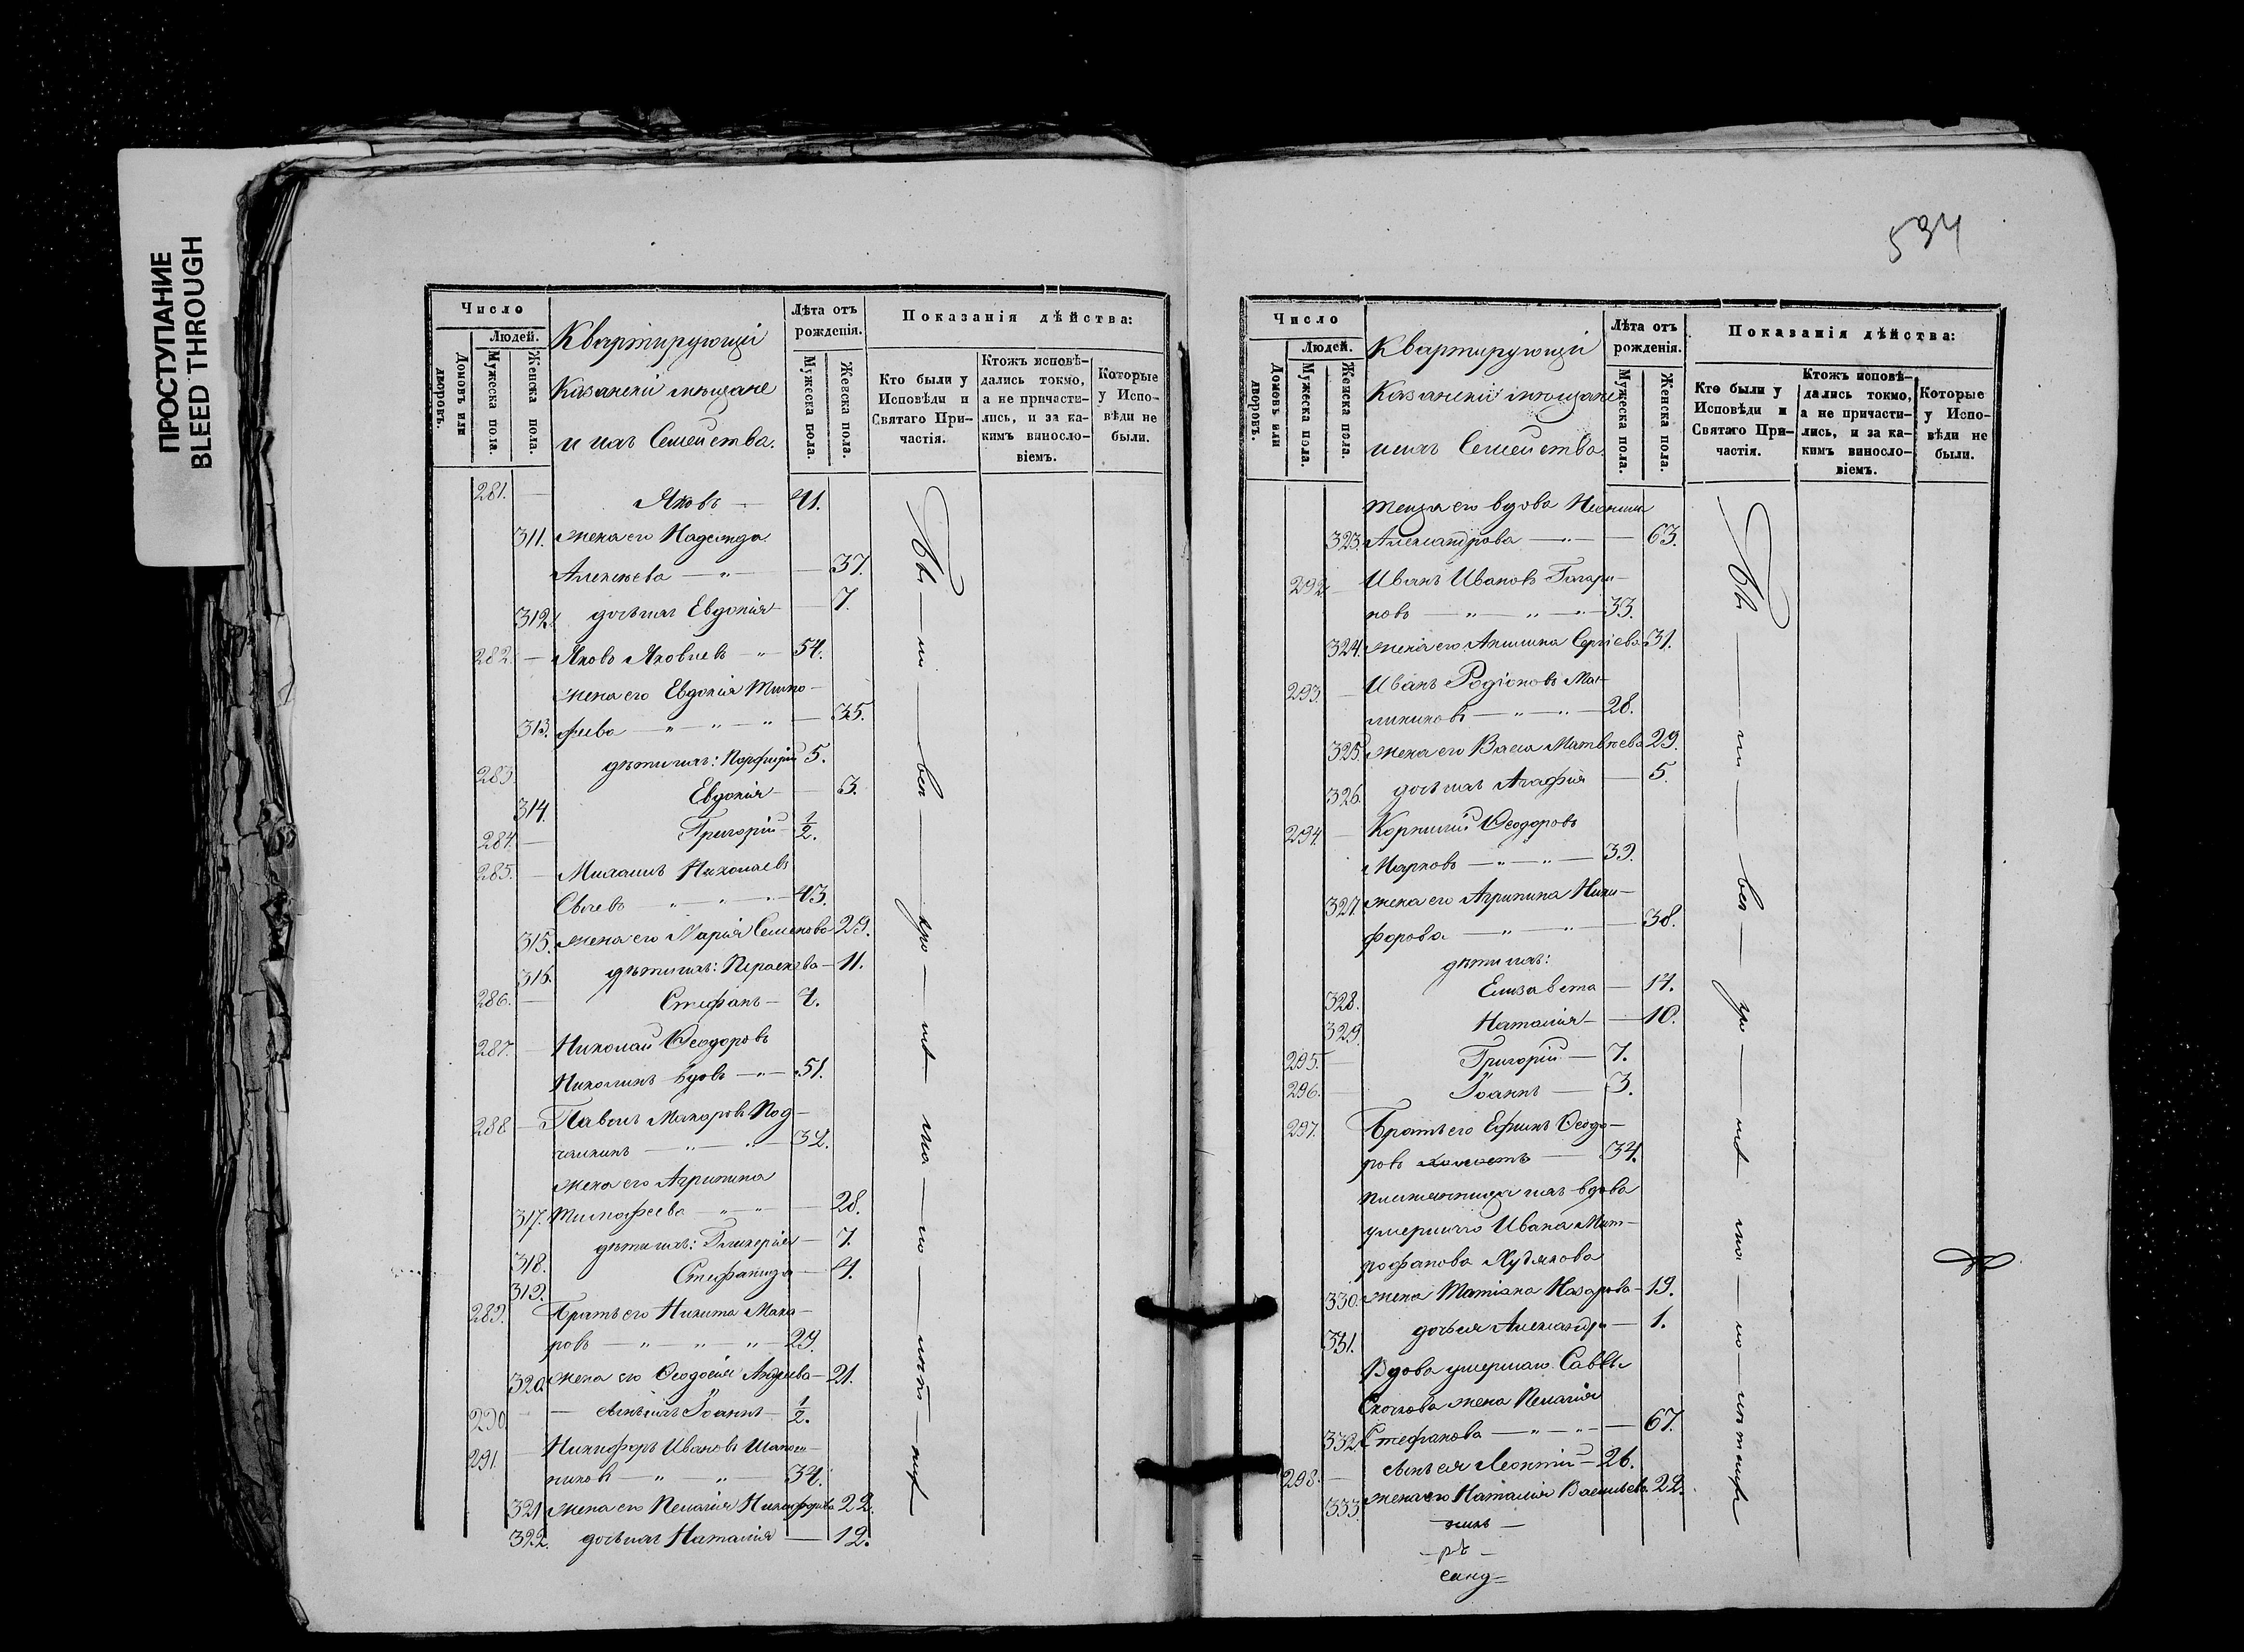 ПРОСТУПАНИЕ
BLEED THROUGH
534
Число
Людей.
Домовъ или дворовъ.
Мужеска пола.
Женска пола.
Квартирующіи
Казанскіи мѣщане
и ихъ Семейства.
Лѣта отъ рожденія.
Мужеска пола.
Женска пола.
Показанія дѣйства:
Кто были у Исповѣди и Святаго Причастія.
Ктожъ исповѣдались токмо, а не причастились, и за какимъ винословіемъ.
Которые у Исповѣди не были.
281. — Яковъ — 41.
311. жена его Надежда
Алексѣева — „ — — 37.
312. дочь ихъ Евдокія — — 7.
282. — Яковъ Яковлевъ — „ 54.
жена его Евдокія Тимо-
313. феева — „ — „ — „ — 35.
283. дѣти ихъ: Порфирій 5.
314. Евдокія — — 3.
284. — Григорій — 1/2.
285. — Михаилъ Николаевъ
— „ — „ — 43.
315. жена его Марія Семенова 29.
316. дѣти ихъ: Параскева — 11.
286. — Стефанъ — 7.
287. — Николай Ѳеодоровъ
Николинъ вдовъ — „ — 51.
288 — Павелъ Макаровъ Под-
— „ — „ — 32.
жена его Агрипина
317. Тимофеева — „ — „ — 28.
318. дѣти ихъ: Гликерія — 7.
319. Стефанида — 4.
289. Братъ его Никита Мака-
ровъ — „ — „ — „ — 29.
320. жена его Ѳеодосія Андреева — 21.
290 — — сынъ ихъ Іоаннъ — 1/2.
291 — Никифоръ Ивановъ
никовъ — „ — „ — 34.
321 жена его Пелагія Никифорова 22.
322. дочь ихъ Наталія — 12.
Число
Людей.
Домовъ или дворовъ.
Мужеска пола.
Женска пола.
Квартирующіи
Казанскіи мѣщане
и ихъ Семейства.
Лѣта отъ рожденія.
Мужеска пола.
Женска пола.
Показанія дѣйства:
Кто были у Исповѣди и Святаго Причастія.
Ктожъ исповѣдались токмо, а не причастились, и за какимъ винословіемъ.
Которые у Исповѣди не были.
теща его вдова
323. Александрова — „ — — 63.
292 — Иванъ Ивановъ Гагари-
новъ — „ — „ — „ — 33.
324. жена его Акилина Сергіева 31.
293. — Иванъ Родіоновъ
— „ — „ — 28.
325. жена его Васса Матвѣева 29.
326. дочь ихъ Агафія — 5.
294. — Корнилій Ѳеодоровъ
Марковъ — „ — „ — 39.
327. жена его Агрипина Ники-
форова — „ — „ — 38.
дѣти ихъ:
328. Елизавета — 14.
329. Наталія — — 10.
295. — Григорій — 7.
296. — Іоаннъ — 3.
297. Братъ его Ефимъ Ѳеодо-
ровъ холостъ — 34.
племянница ихъ вдова
умершаго Ивана Мит-
рофанова Худякова
330. жена Татіана Назарова — 19.
331. дочь ея Александра — 1.
Вдова умершаго Саввы
Скочкова жена Пелагія
332. Стефанова — „ — „ — — 67.
298. — сынъ ея Леонтій — 26.
333. жена его Наталія Васильева 22.
— рѣ —
санд-